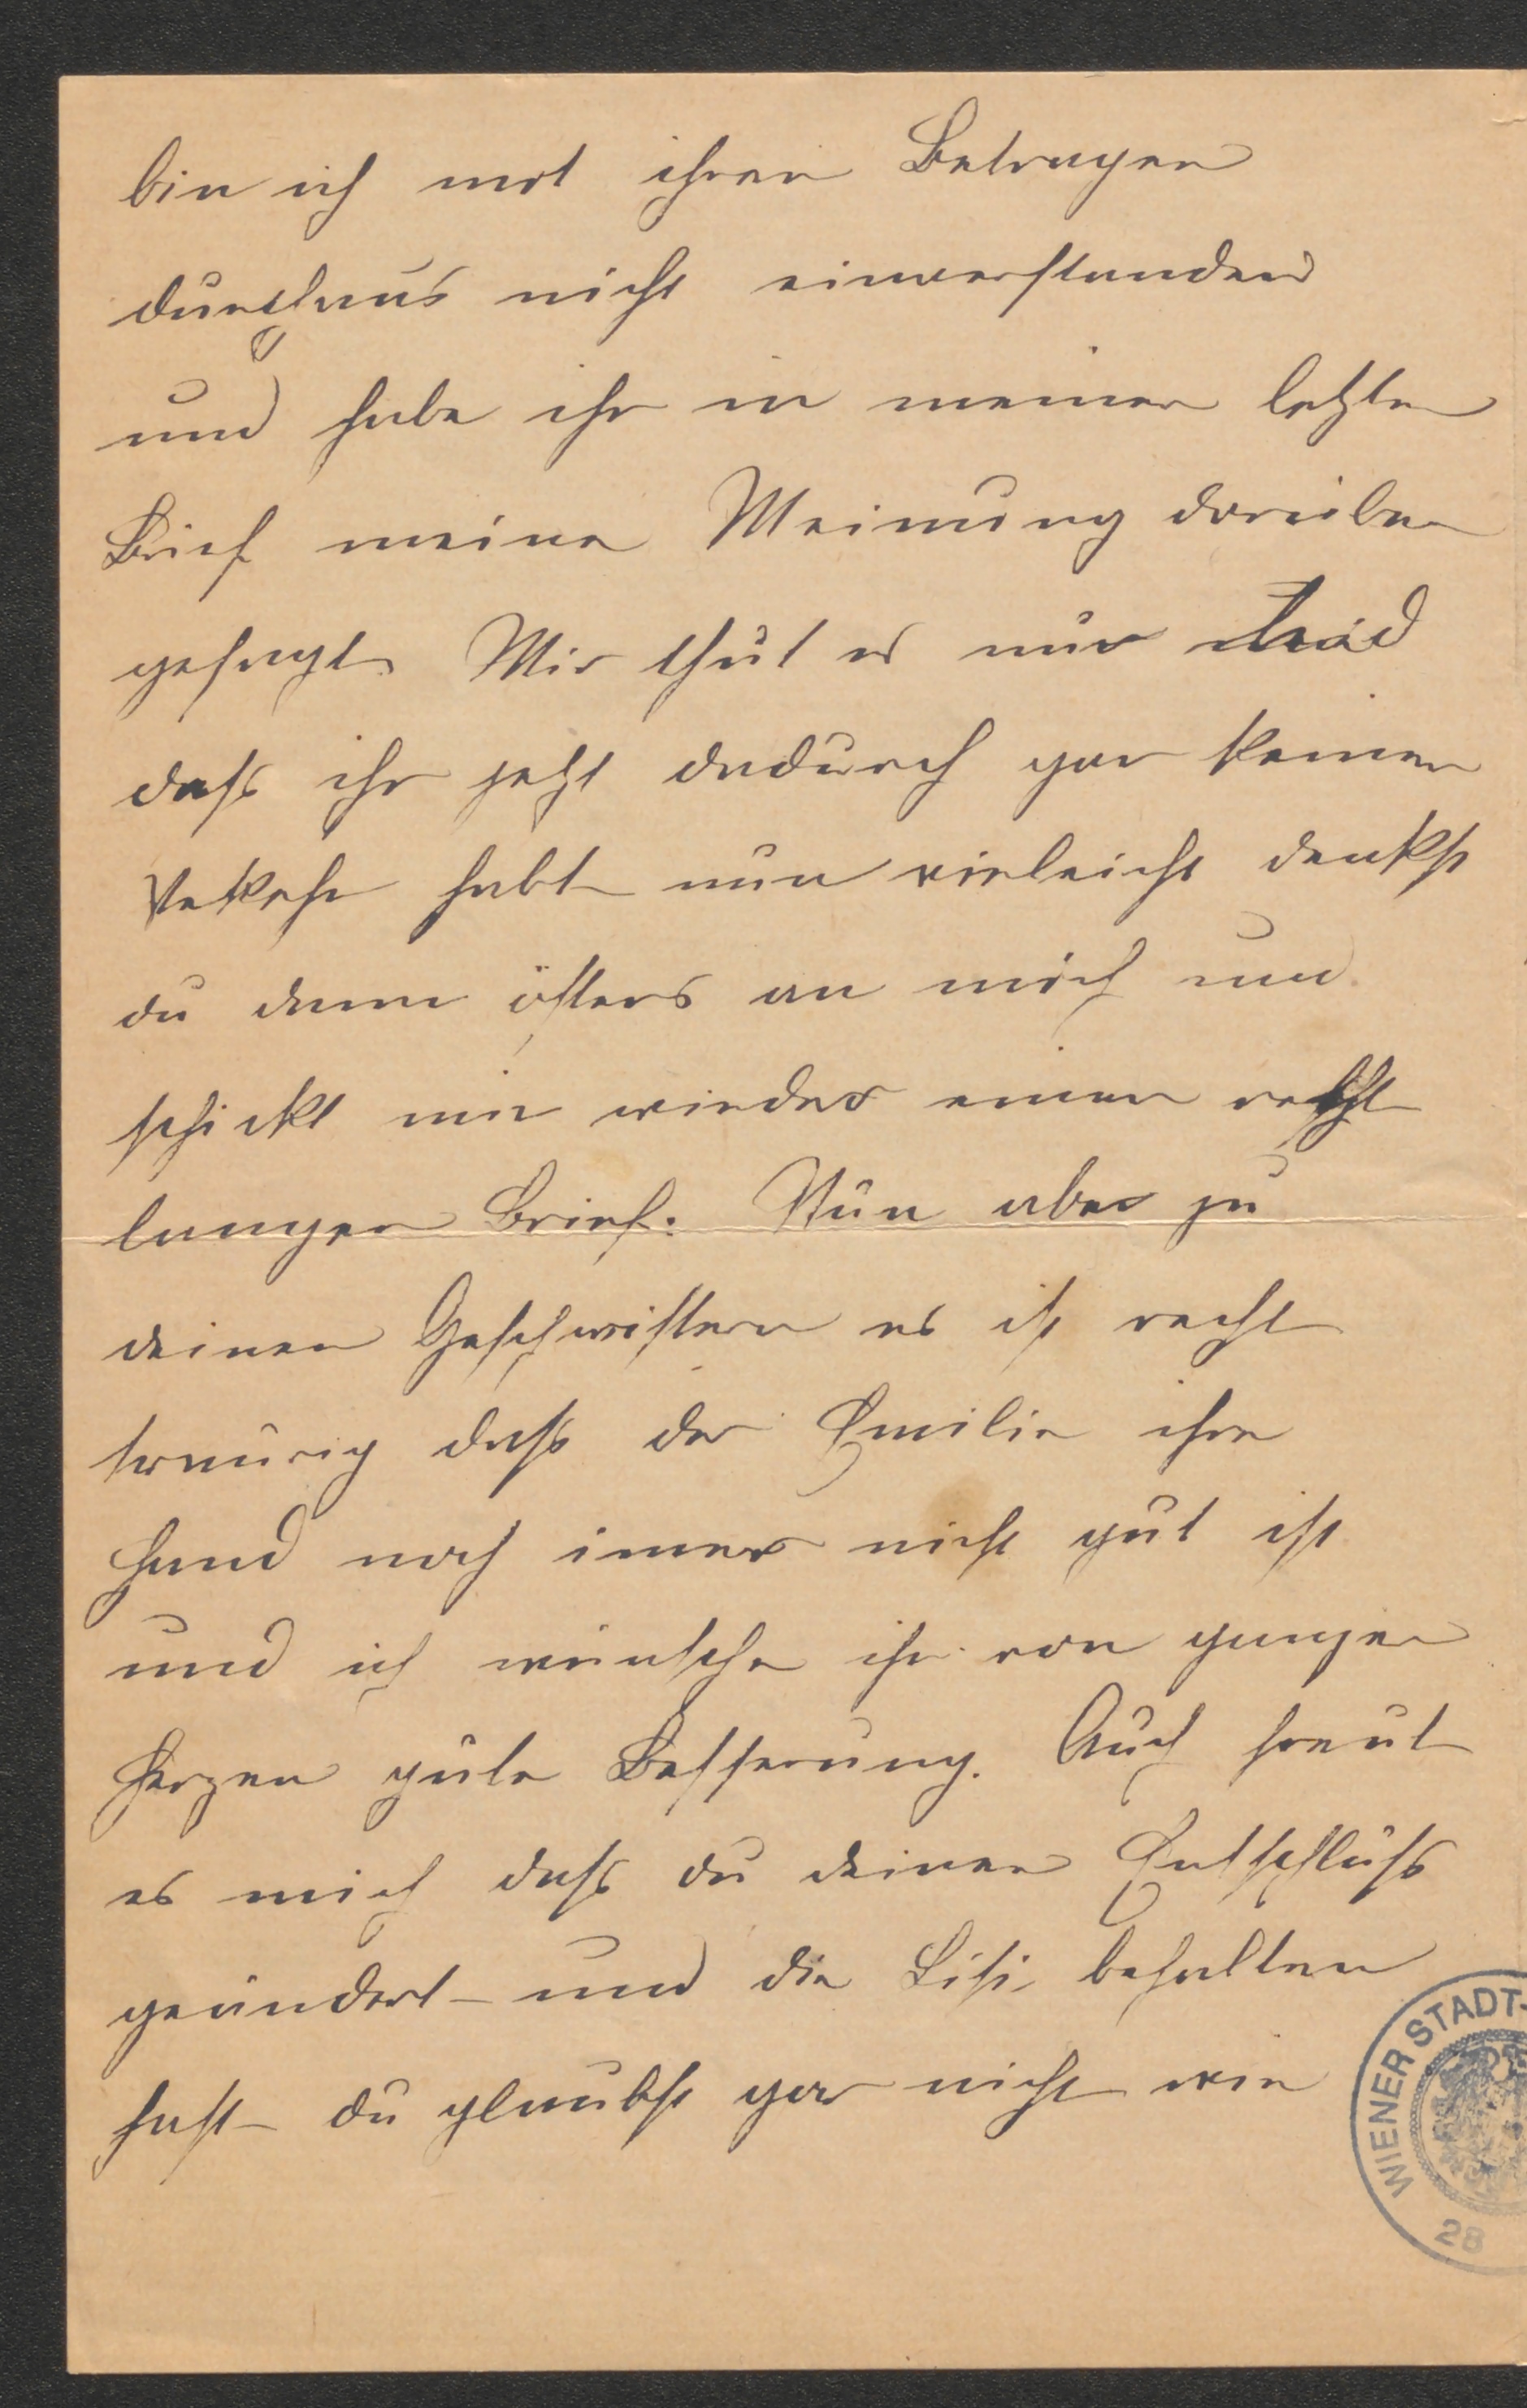 bin ich mit ihren Betragen
durchaus nicht einverstanden
und habe ihr in meinen letzten
Brief meine Meinung darüber
gesagt. Mir thut es nur leid
dass ihr jetzt dadurch gar keinen
Verkehr habt nun vieleicht denkst
du dann öfters an mich und
schickt mir wieder einen recht
langen Brief. Nun aber zu
deinen Geschwistern es ist recht
traurig dass der Emilie ihre
Hand noch immer nicht gut ist
und ich wünsche ihr von ganzen
Herzen gute Besserung. Auch freut
es mich dass du deinen Entschluss
geändert und die Lisi behalten
hast du glaubst gar nicht wie
WIENER STADT-
28